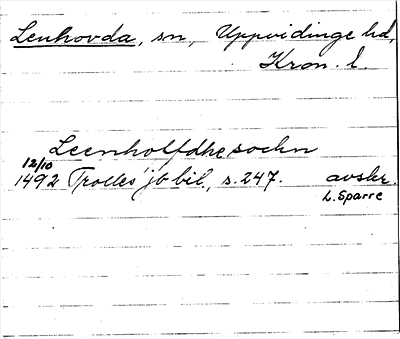 Lenhovda, sn, Uppvidinge hd,
Kron. l.
Leenholffdhe sochn
12/10
1492 Trolles jb bil., s. 247. avskr.
L. Sparre